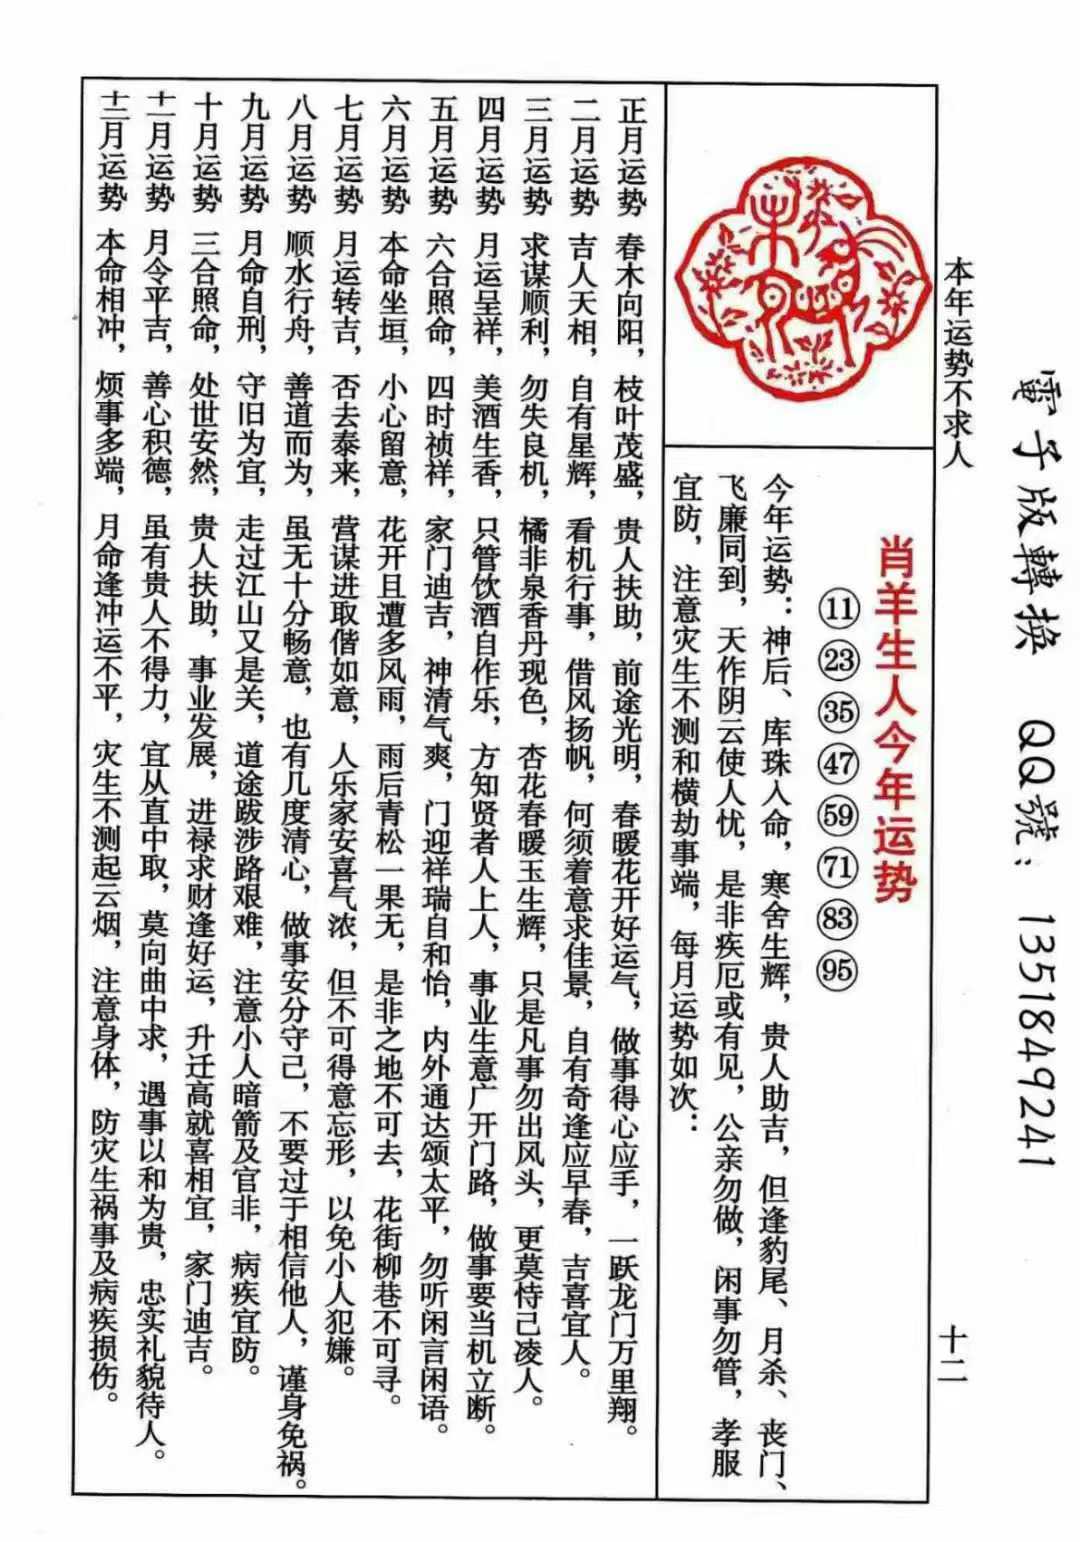 電子版轉换 QQ號：1351849241
本年运势不求人
十二
肖羊生人今年运势
⑪ ㉓ ㉟ ㊼ 59 71 83 95
今年运势：神后、库珠入命，寒舍生辉，贵人助吉，但逢豹尾、月杀、丧门、
飞廉同到，天作阴云使人忧，是非疾厄或有见，公亲勿做，闲事勿管，孝服
宜防，注意灾生不测和横劫事端，每月运势如次：
正月运势 春木向阳，枝叶茂盛，贵人扶助，前途光明，春暖花开好运气，做事得心应手，一跃龙门万里翔。
二月运势 吉人天相，自有星辉，看机行事，借风扬帆，何须着意求佳景，自有奇逢应早春，吉喜宜人。
三月运势 求谋顺利，勿失良机，橘非泉香丹现色，杏花春暖玉生辉，只是凡事勿出风头，更莫恃己凌人。
四月运势 月运呈祥，美酒生香，只管饮酒自作乐，方知贤者人上人，事业生意广开门路，做事要当机立断。
五月运势 六合照命，四时祯祥，家门迪吉，神清气爽，门迎祥瑞自和怡，内外通达颂太平，勿听闲言闲语。
六月运势 本命坐垣，小心留意，花开且遭多风雨，雨后青松一果无，是非之地不可去，花街柳巷不可寻。
七月运势 月运转吉，否去泰来，营谋进取偕如意，人乐家安喜气浓，但不可得意忘形，以免小人犯嫌。
八月运势 顺水行舟，善道而为，虽无十分畅意，也有几度清心，做事安分守己，不要过于相信他人，谨身免祸。
九月运势 月命自刑，守旧为宜，走过江山又是关，道途跋涉路艰难，注意小人暗箭及官非，病疾宜防。
十月运势 三合照命，处世安然，贵人扶助，事业发展，进禄求财逢好运，升迁高就喜相宜，家门迪吉。
十一月运势 月令平吉，善心积德，虽有贵人不得力，宜从直中取，莫向曲中求，遇事以和为贵，忠实礼貌待人。
十二月运势 本命相冲，烦事多端，月命逢冲运不平，灾生不测起云烟，注意身体，防灾生祸事及病疾损伤。